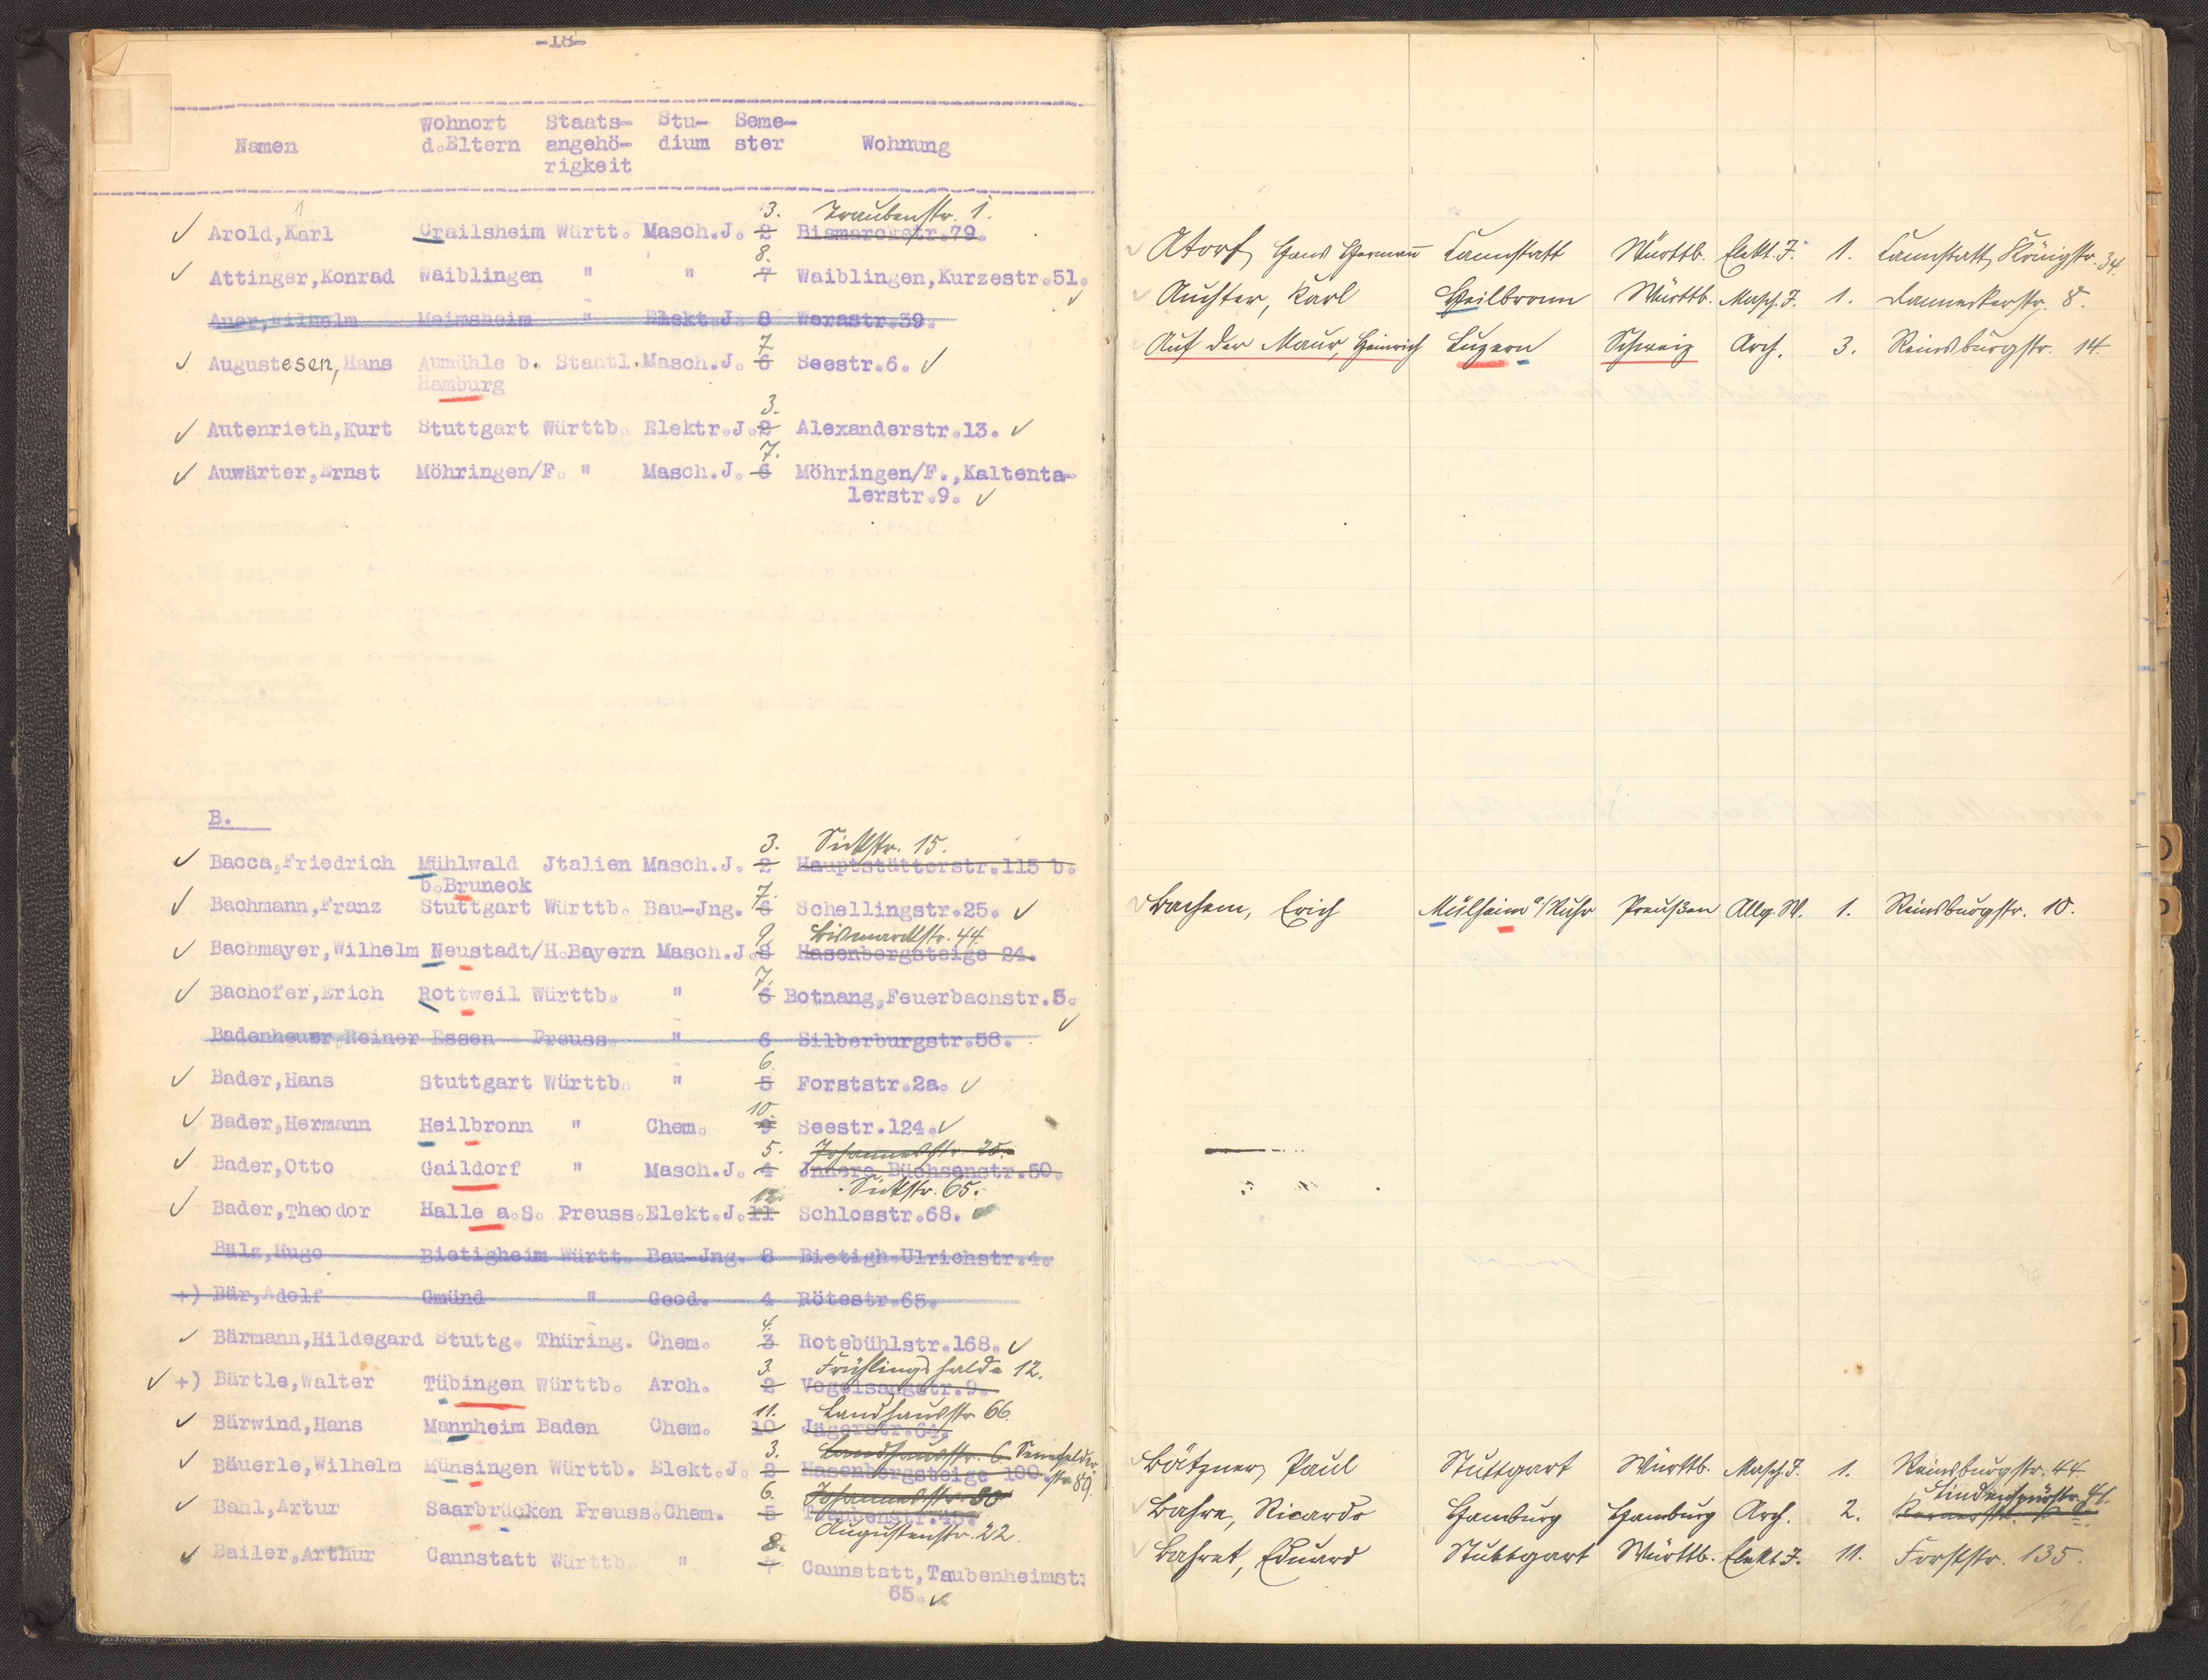 -18-
Wohnort Staats- Stu- Seme-
Namen d.Eltern angehö- dium ster Wohnung
rigkeit
3. Traubenstr. 1.
✓ Arold,Karl Crailsheim Württ. Masch.J. 2 Bismarckstr.79.
8.
✓ Attinger,Konrad Waiblingen " " 7 Waiblingen,Kurzestr.51.
✓
Auer,Wilhelm Meimsheim " Elekt.J. 8 Werastr.39.
7
✓ Augustesen, Hans Aumühle b. Staatl.Masch.J. 6 Seestr.6. ✓
Hamburg
3.
✓ Autenrieth,Kurt Stuttgart Württb. Elektr.J.2 Alexanderstr.13. ✓
7.
✓ Auwärter,Ernst Möhringen/F. " Masch.J. 6 Möhringen/F.,Kaltenta-
lerstr.9. ✓
B.
3. Sickstr. 15.
✓ Bacca,Friedrich Mühlwald Jtalien Masch.J. 2 Hauptstätterstr.115 b.
b.Bruneck
7.
✓ Bachmann,Franz Stuttgart Württb. Bau-Jng. 6 Schellingstr.25. ✓
9. Bismarckstr. 44.
✓ Bachmayer,Wilhelm Neustadt/H.Bayern Masch.J.8 Hasenbergsteige 24.
7.
✓ Bachofer,Erich Rottweil Württb. " 6 Botnang,Feuerbachstr.5.
✓
Badenheuer,Reiner Essen Preuss. " 6 Silberburgstr.58.
6.
✓ Bader,Hans Stuttgart Württb. " 5 Forststr.2a. ✓
10.
✓ Bader,Hermann Heilbronn " Chem. 9 Seestr.124. ✓
5. Johannesstr. 25.
✓ Bader,Otto Gaildorf " Masch.J. 4 Jnnere Büchsenstr.50.
12. Sickstr. 65.
✓ Bader,Theodor Halle a.S. Preuss.Elekt.J.11 Schlosstr.68. ✓
Bälz,Hugo Bietigheim Württ. Bau-Jng. 8 Bietigh.Ulrichstr.4.
+) Bär,Adolf Gmünd " Geod. 4 Rötestr.65.
4.
✓ Bärmann,Hildegard Stuttg. Thüring. Chem. 3 Rotebühlstr.168. ✓
3. Frühlingshalde 12.
✓ +) Bärtle,Walter Tübingen Württb. Arch. 2 Vogelsangstr.9.
11. Landhausstr. 66.
✓ Bärwind,Hans Mannheim Baden Chem. 10 Jägerstr.64.
3. Landhausstr. 6 Senefelder-
✓ Bäuerle,Wilhelm Münsingen Württb. Elekt.J. 2 Hasenbergsteige 100. str. 89.
6. Johannesstr. 80
✓ Bahl,Artur Saarbrücken Preuss.Chem. 5
8. Augustenstr. 22.
✓ Bailer,Arthur Cannstatt Württb. " 7 Cannstatt,Taubenheimst:
65. ✓
Atorf, Hans Hermann Cannstatt Württb. Elekt. J. 1. Cannstatt, Königstr. 34.
Auchter, Karl Heilbronn Württb. Masch. J. 1. Danneckerstr. 8.
Auf der Maur, Heinrich Luzern Schweiz Arch. 3. Reinsburgstr. 14.
Bachem, Erich Mülheim a/Ruhr Preußen Allg. W. 1. Reinsburgstr. 10.
Bätzner, Paul Stuttgart Württb. Masch. J. 1. Reinsburgstr. 44
Lindenspürstr. 41.
Bahre, Ricardo Hamburg Hamburg Arch. 2.
Bahret, Eduard Stuttgart Württb. Elekt. J. 11. Forststr. 135.